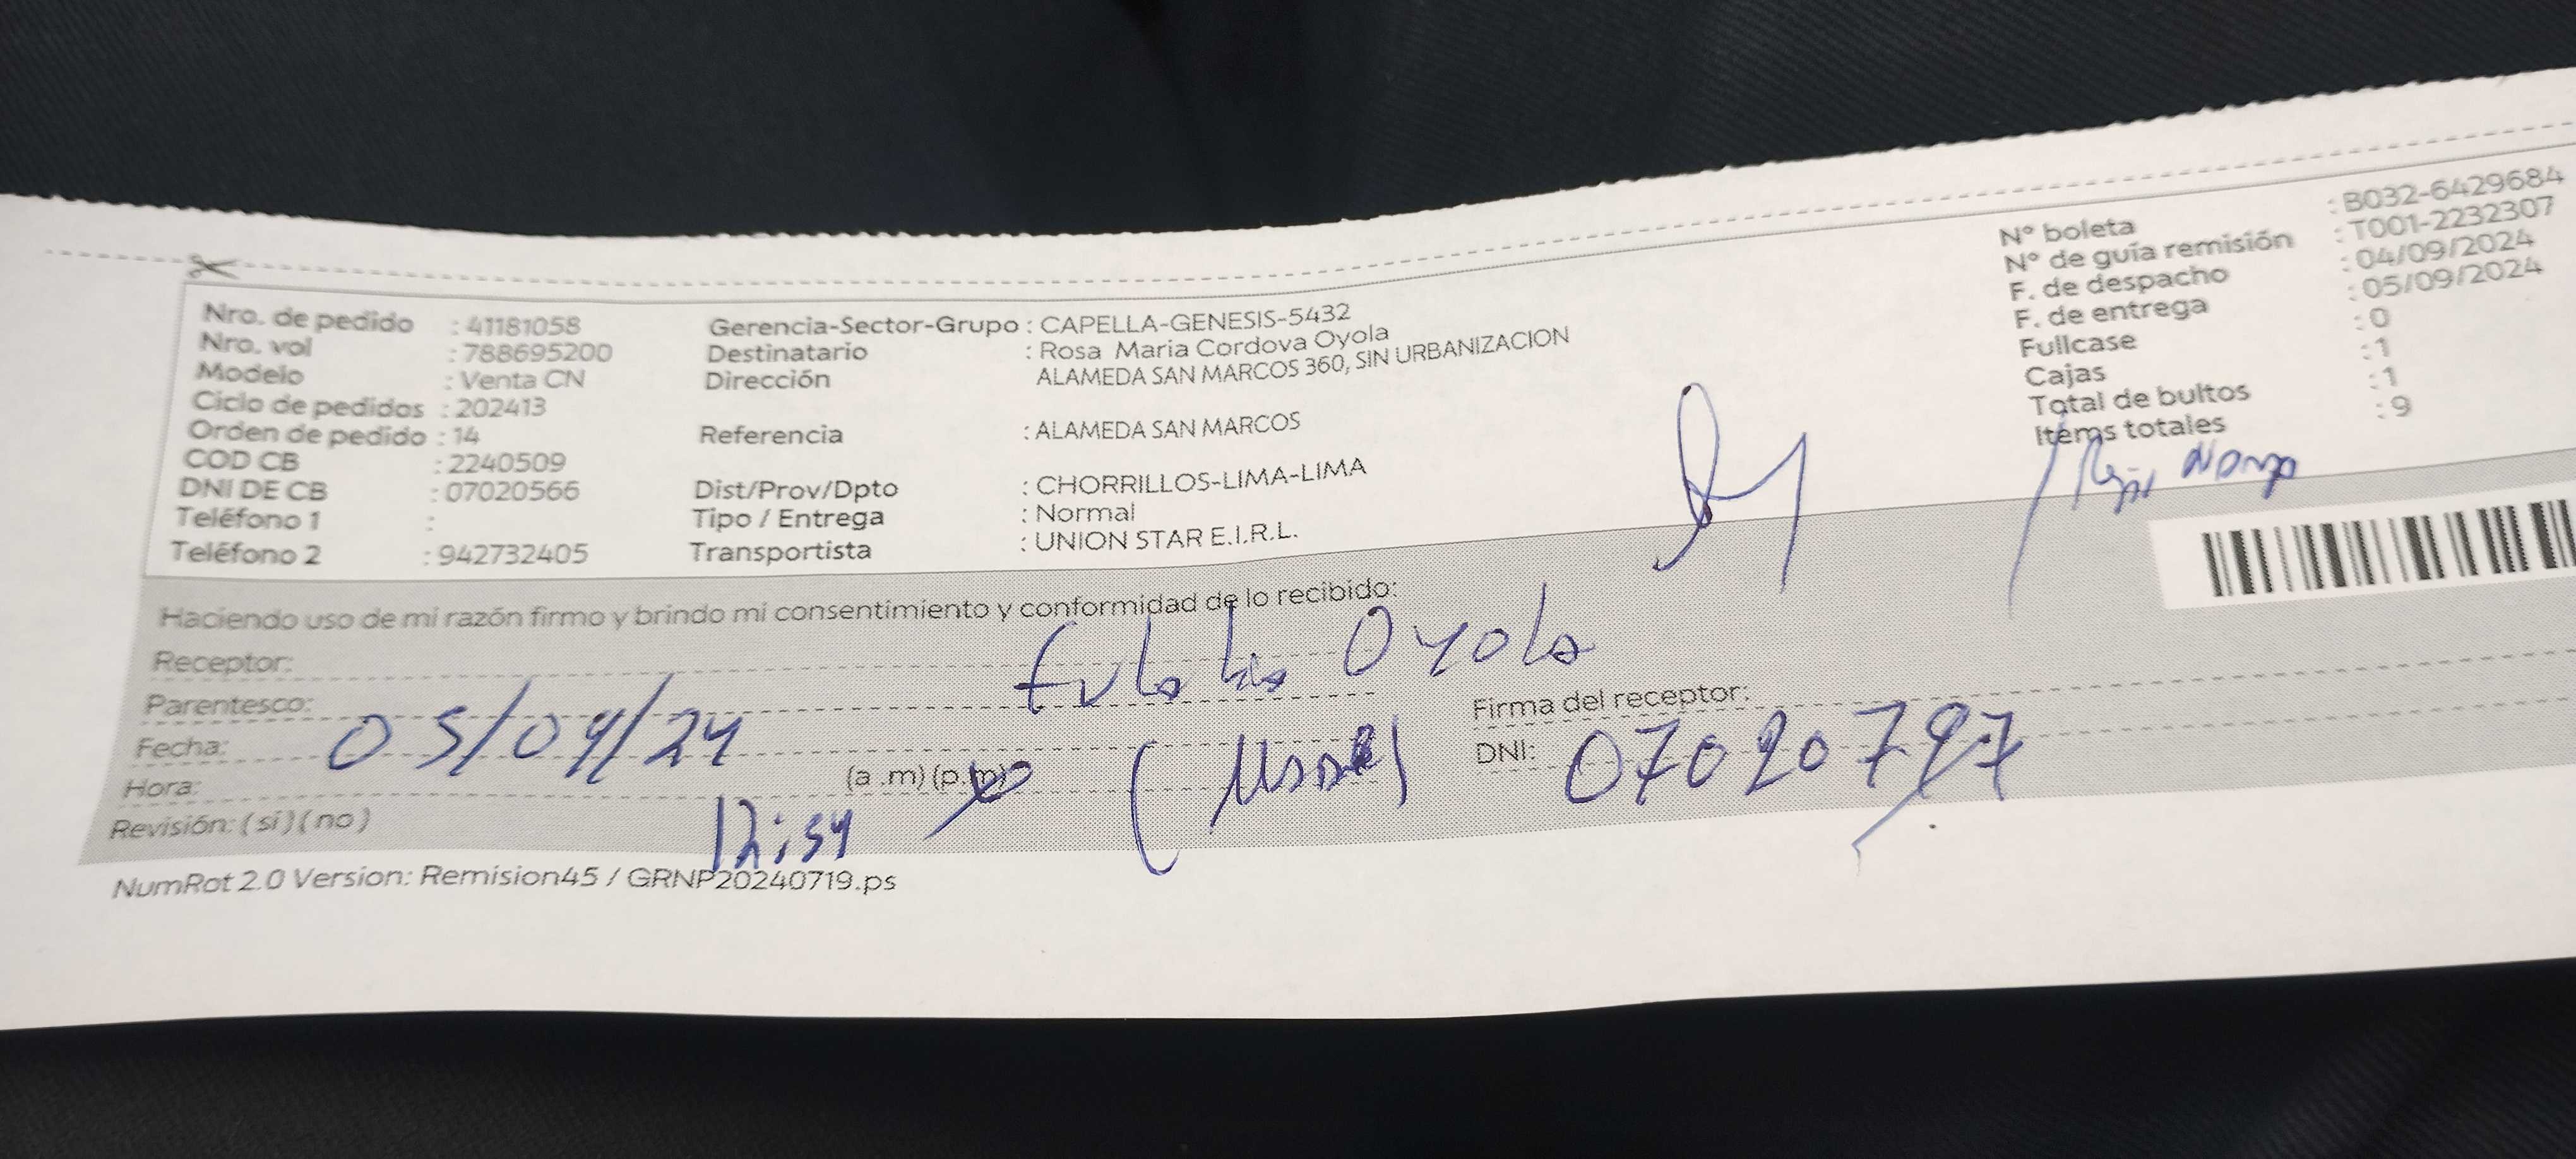 Nro. de pedido : 41181058
Nro. vol : 788695200
Modelo : Venta CN
Ciclo de pedidos : 202413
Orden de pedido : 14
COD CB : 2240509
DNI DE CB : 07020566
Teléfono 1 :
Teléfono 2 : 942732405
Gerencia-Sector-Grupo : CAPELLA-GENESIS-5432
Destinatario : Rosa Maria Cordova Oyola
Dirección ALAMEDA SAN MARCOS 360, SIN URBANIZACION
Referencia : ALAMEDA SAN MARCOS
Dist/Prov/Dpto : CHORRILLOS-LIMA-LIMA
Tipo / Entrega : Normal
Transportista : UNION STAR E.I.R.L.
N° boleta : B032-6429684
N° de guía remisión : T001-2232307
F. de despacho : 04/09/2024
F. de entrega : 05/09/2024
Fullcase : 0
Cajas : 1
Total de bultos : 1
Items totales : 9
Haciendo uso de mi razón firmo y brindo mi consentimiento y conformidad de lo recibido:
Receptor: Oyola
Parentesco:
Firma del receptor:
Fecha: 05/09/24
DNI:
Hora: (a .m) (p.m)
12:54
Revisión: ( si ) ( no )
NumRot 2.0 Version: Remision45 / GRNP20240719.ps